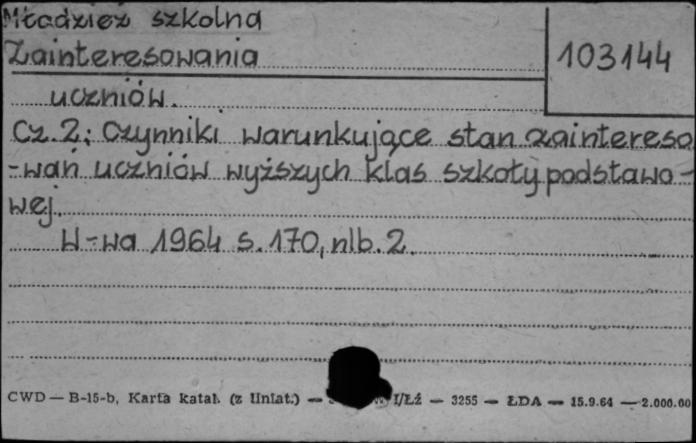 Młodzież szkolna
Zainteresowania
103144
uczniów.
Cz.2: Czynniki warunkujące stan zaintereso
-wań uczniów wyższych klas szkoły podstawo-
wej.
W-wa 1964 s.170, nlb.2.
CWD — B-15-b, Karta katal. (z liniat.) — I/Łź — 3255 — ŁDA — 15.9.64 — 2.000.00